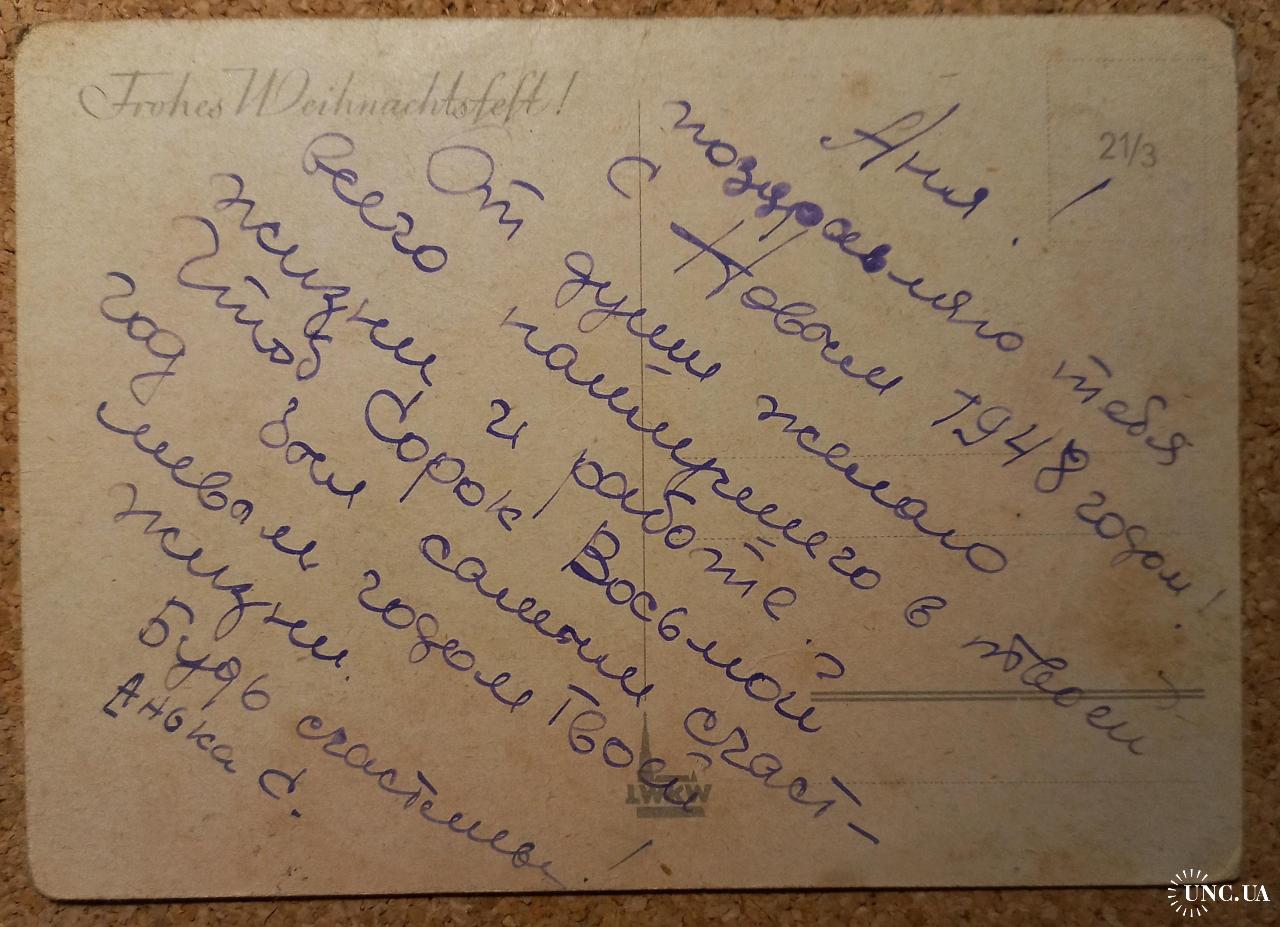 Frohes Weihnachtsfest!
21/3
Аня!
поздравляю тебя
с Новым 1948 годом!
От души желаю
всего наилучшего в твоей
жизни и работе.
Чтоб Сорок Восьмой
год был самым счаст-
ливым годом Твоей
жизни.
Будь счастлива!
Анька С.
UNC.UA